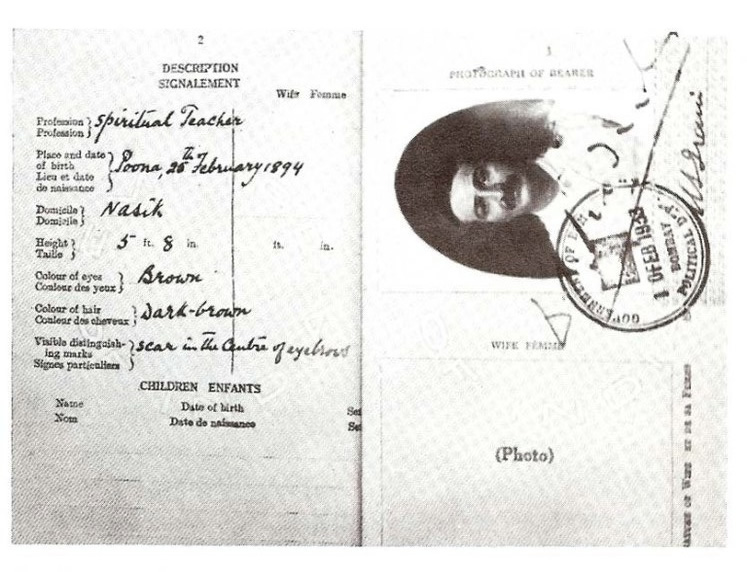 2
DESCRIPTION
SIGNALEMENT
Wife Femme
Profession
Profession
Spiritual Teacher
Place and date
of birth
Lieu et date
de naissance
Poona, 25th February 1894
Domicile
Domicile
Nasik
Height
Taille
5 ft. 8 in.
ft. in.
Colour of eyes
Couleur des yeux
Brown
Colour of hair
Couleur des cheveux
Dark-brown
Visible distinguish-
ing marks
Signes particuliers
scar in the Centre of eyebrows
CHILDREN ENFANTS
Name
Nom
Date of birth
Date de naissance
3
PHOTOGRAPH OF BEARER
GOVERNMENT OF
FEB
BOMBAY
POLITICAL DEPT.
Irani
WIFE FEMME
(Photo)
OF WIFE ET DE SA FEMME